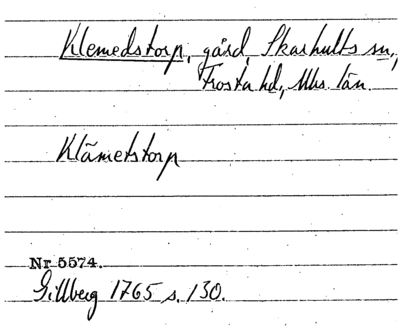 Klemedstorp, gård, Skarhults sn,
Frosta hd, Mhs. län.
Klämetstorp
Nr 5574.
Gillberg 1765 s. 130.